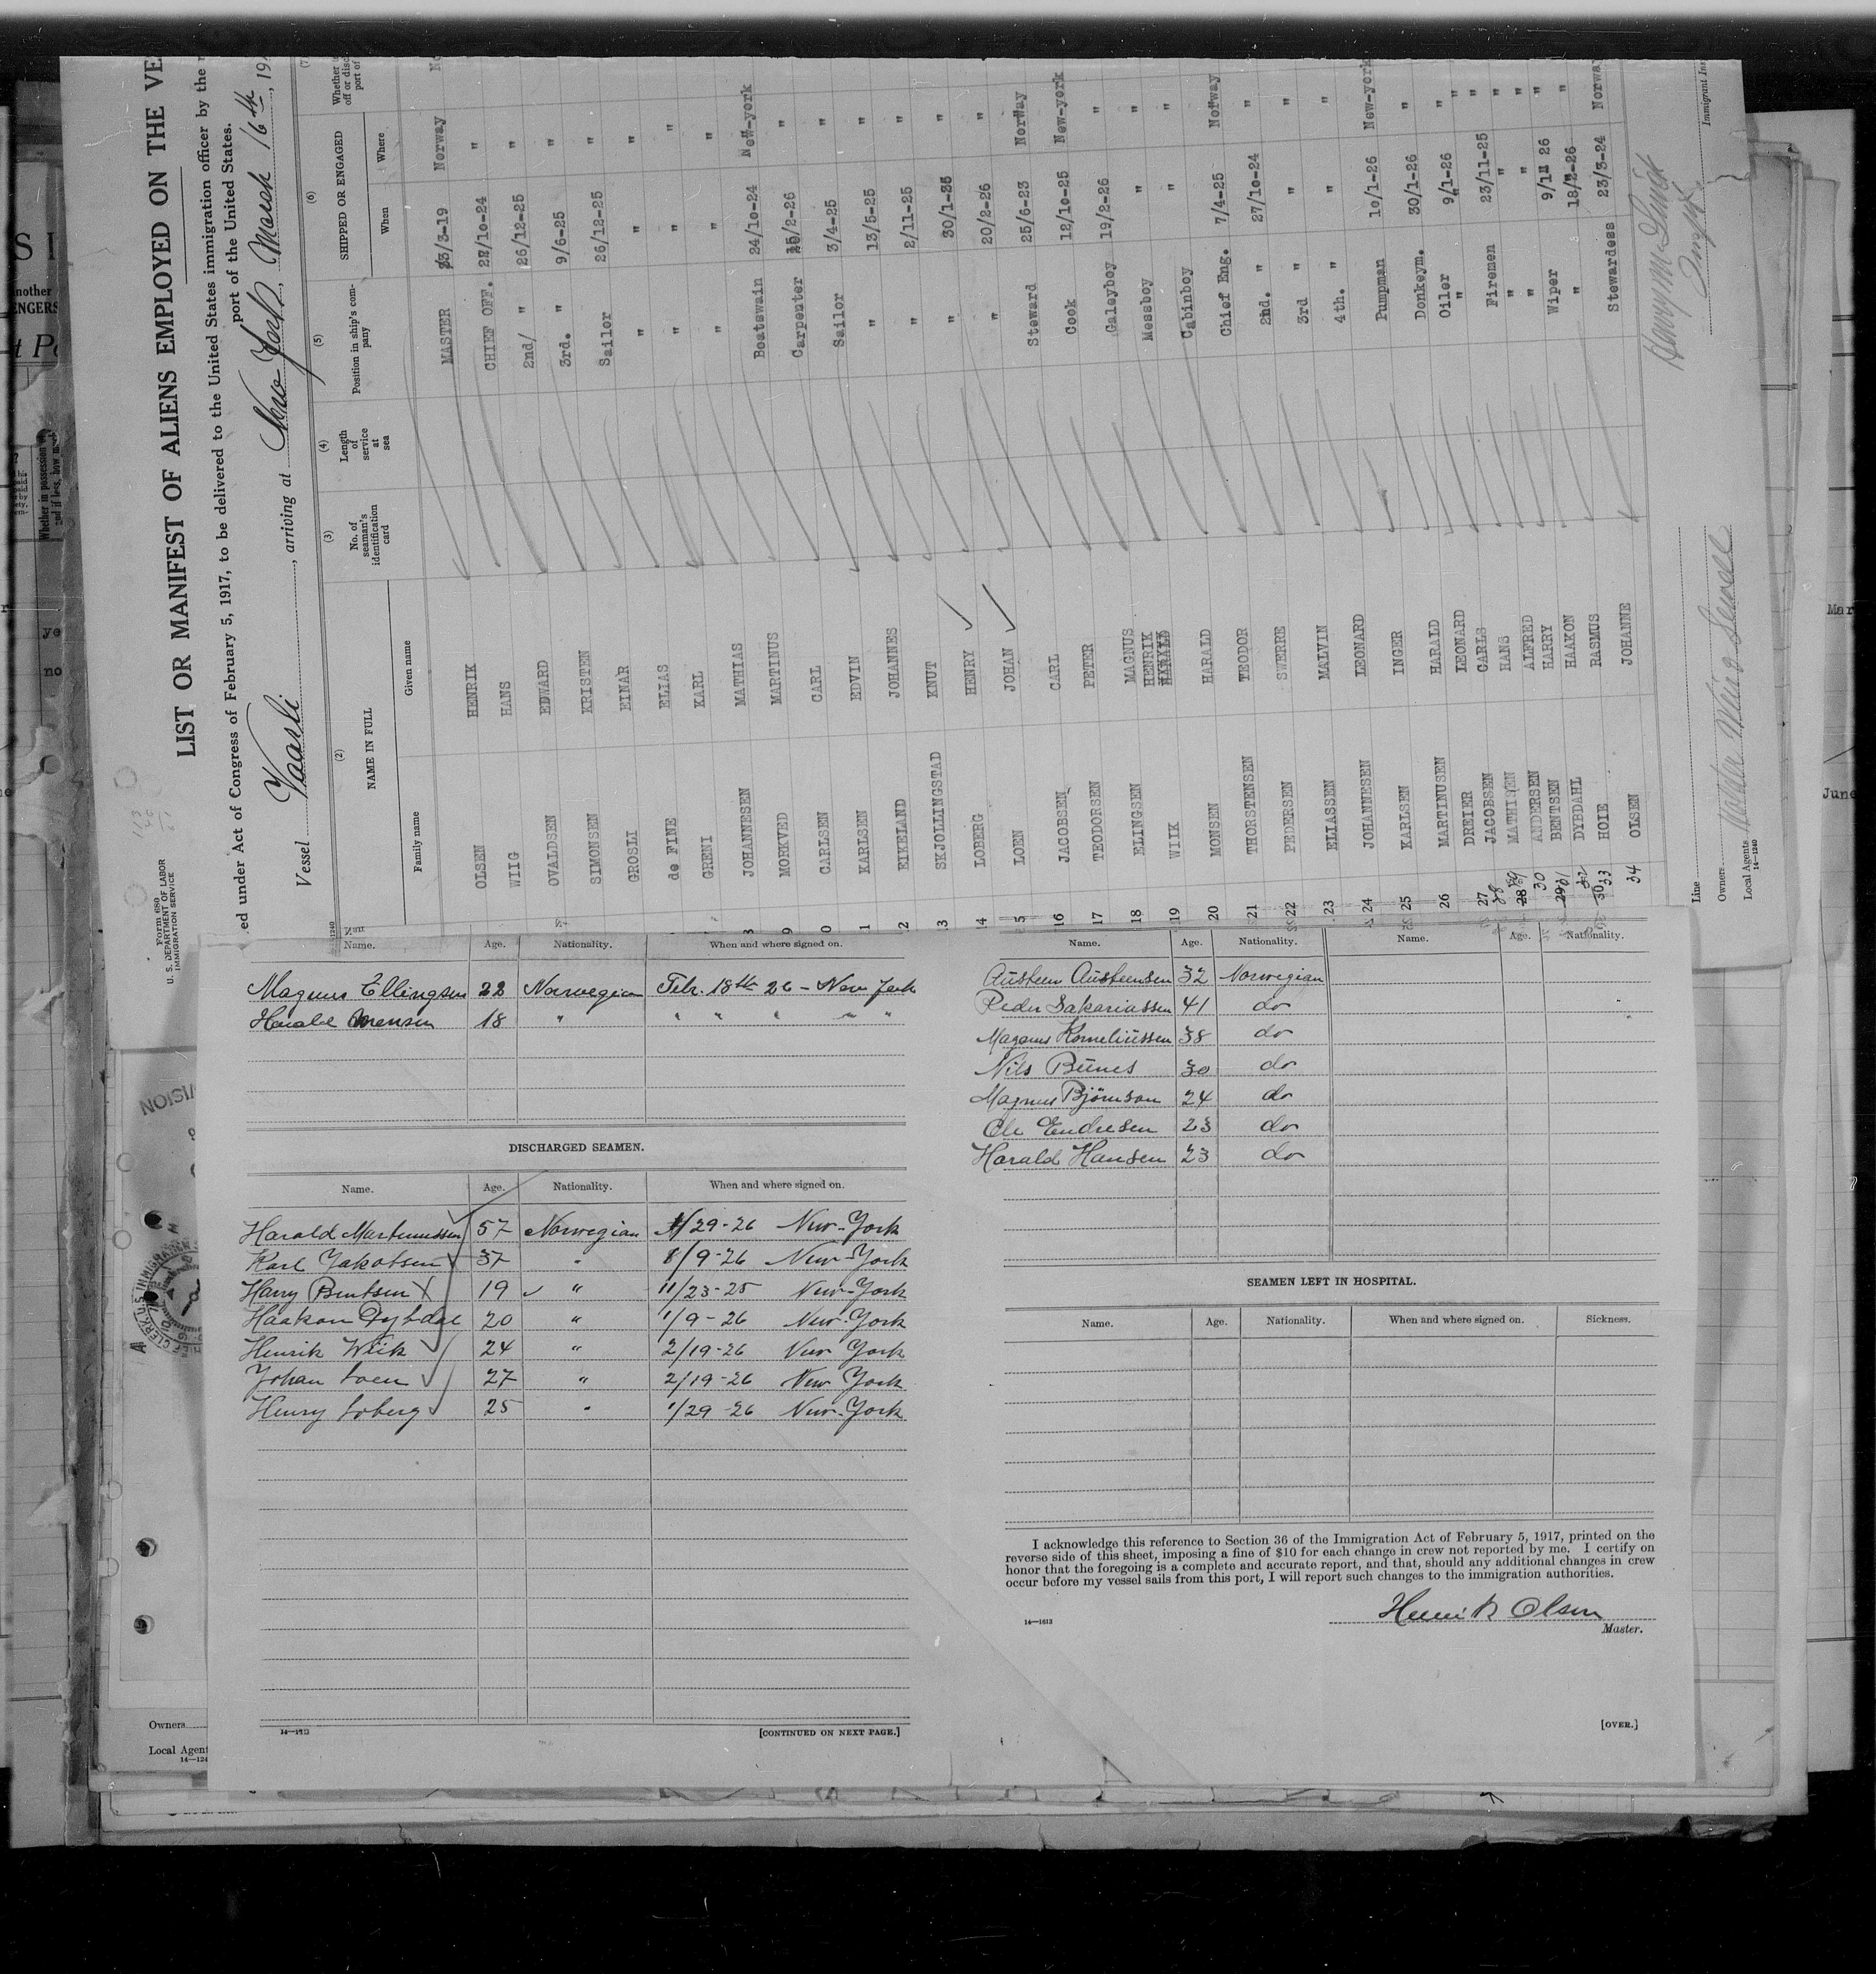 Form 680
U. S. DEPARTMENT OF LABOR
IMMIGRATION SERVICE
LIST OR MANIFEST OF ALIENS EMPLOYED ON THE VE
ed under Act of Congress of February 5, 1917, to be delivered to the United States immigration officer by the r
port of the United States.
Vessel Vaarli, arriving at New York March 16th, 19
(2) (3) (4) (5) (6) (7)
NAME IN FULL No. of seaman's identification card Length of service at sea Position in ship's company SHIPPED OR ENGAGED
Family name Given name When Where
OLSEN HENRIK MASTER 23/3-19 Norway
WIIG HANS CHIEF OFF. 22/10-24 "
OVALDSEN EDWARD 2nd/ " 26/12-25 "
SIMONSEN KRISTEN 3rd. " 9/6-25 "
GROSLI EINAR Sailor 26/12-25 "
de FINE ELIAS " " "
GRENI KARL " " "
JOHANNESEN MATHIAS Boatswain 24/10-24 New-york
9 MORKVED MARTINUS Carpenter 15/2-26 "
0 CARLSEN CARL Sailor 3/4-25 "
1 KARLSEN EDVIN " 13/5-25 "
2 EIKELAND JOHANNES " 2/11-25 "
3 SKJOLLINGSTAD KNUT " 30/1-26 "
14 LOBERG HENRY " 20/2-26 "
15 LOEN JOHAN Steward 25/6-23 Norway
16 JACOBSEN CARL Cook 12/10-25 New-york
17 TEODORSEN PETER Galeyboy 19/2-26 "
18 ELINGSEN MAGNUS Messboy " "
19 WIIK HENRIK Cabinboy " "
20 MONSEN HARALD Chief Eng. 7/4-25 Norway
21 THORSTENSEN TEODOR 2nd. " 27/10-24 "
22 PEDERSEN SWERRE 3rd " " "
23 ELIASSEN MALVIN 4th. " " "
24 JOHANNESEN LEONARD Pumpman 10/1-26 New-york
25 KARLSEN INGER Donkeym. 30/1-26 "
26 MARTINUSEN HARALD Oiler 9/1-26 "
27 DREIER LEONARD " " "
28 JACOBSEN CARLS Firemen 23/11-25 "
MATHISEN HANS " " "
30 ANDERSEN ALFRED " " "
31 BENTSEN HARRY Wiper 9/1 26 "
32 DYBDAHL HAAKON " 18/2-26 "
33 HOIE RASMUS Stewardess 23/3-24 Norway
34 OLSEN JOHANNE
Line
Owners
Local Agents
14—1240
Immigrant Ins
Name. Age. Nationality. When and where signed on.
Magnus Ellingsen 22 Norwegian Feb. 18th 26 - New York
Harald Monsen 18 " " " " " "
DISCHARGED SEAMEN.
Name. Age. Nationality. When and where signed on.
Harald Martinussen 57 Norwegian 1/29-26 New-York
Karl Jakobsen 37 " 1/9-26 New-York
Harry Bentsen 19 " 11/23-25 New-York
Haakon Dybdal 20 " 1/9-26 New-York
Henrik Wiik 24 " 2/19-26 New York
Johan Loen 27 " 2/19-26 New York
Henry Loberg 25 " 1/29-26 New-York
[CONTINUED ON NEXT PAGE.]
Name. Age. Nationality. Name. Age. Nationality.
Austeen Austeensen 32 Norwegian
Peder Sakariassen 41 do
Magnus Korneliussen 38 do
Nils Bunes 30 do
Magnus Björnson 24 do
Ole Endresen 23 do
Harald Hansen 23 do
SEAMEN LEFT IN HOSPITAL.
Name. Age. Nationality. When and where signed on. Sickness.
I acknowledge this reference to Section 36 of the Immigration Act of February 5, 1917, printed on the
reverse side of this sheet, imposing a fine of $10 for each change in crew not reported by me. I certify on
honor that the foregoing is a complete and accurate report, and that, should any additional changes in crew
occur before my vessel sails from this port, I will report such changes to the immigration authorities.
Henrik Olsen
14—1613
Master.
[OVER.]
Owners
Local Agent
14—124